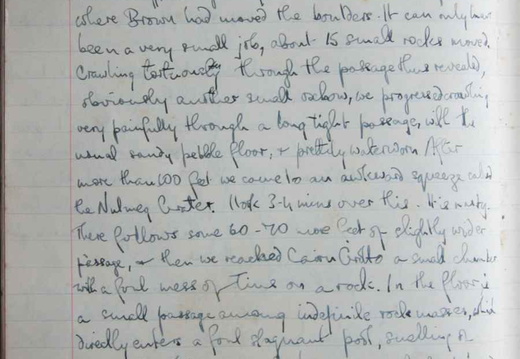 where Brown had moved the boulders. It can only have
been a very small job, about 15 small rocks moved.
Crawling tortuously through the passage thus revealed,
obviously another small oxbow, we progressed crawling
very painfully through a long tight passage, with the
usual sandy pebble floor, & prettily waterworn. After
more than 100 feet we came to an awkward squeeze called
the Nutmeg Grater. I took 3-4 mins over this. It is nasty.
There follows some 60-70 more feet of slightly wider
passage, & then we reached Cairn Grotto a small chamber
with a foul mess of Tins on a rock. In the floor is
a small passage among indefinite rock masses, which
directly enters a foul stagnant pool, smelling of